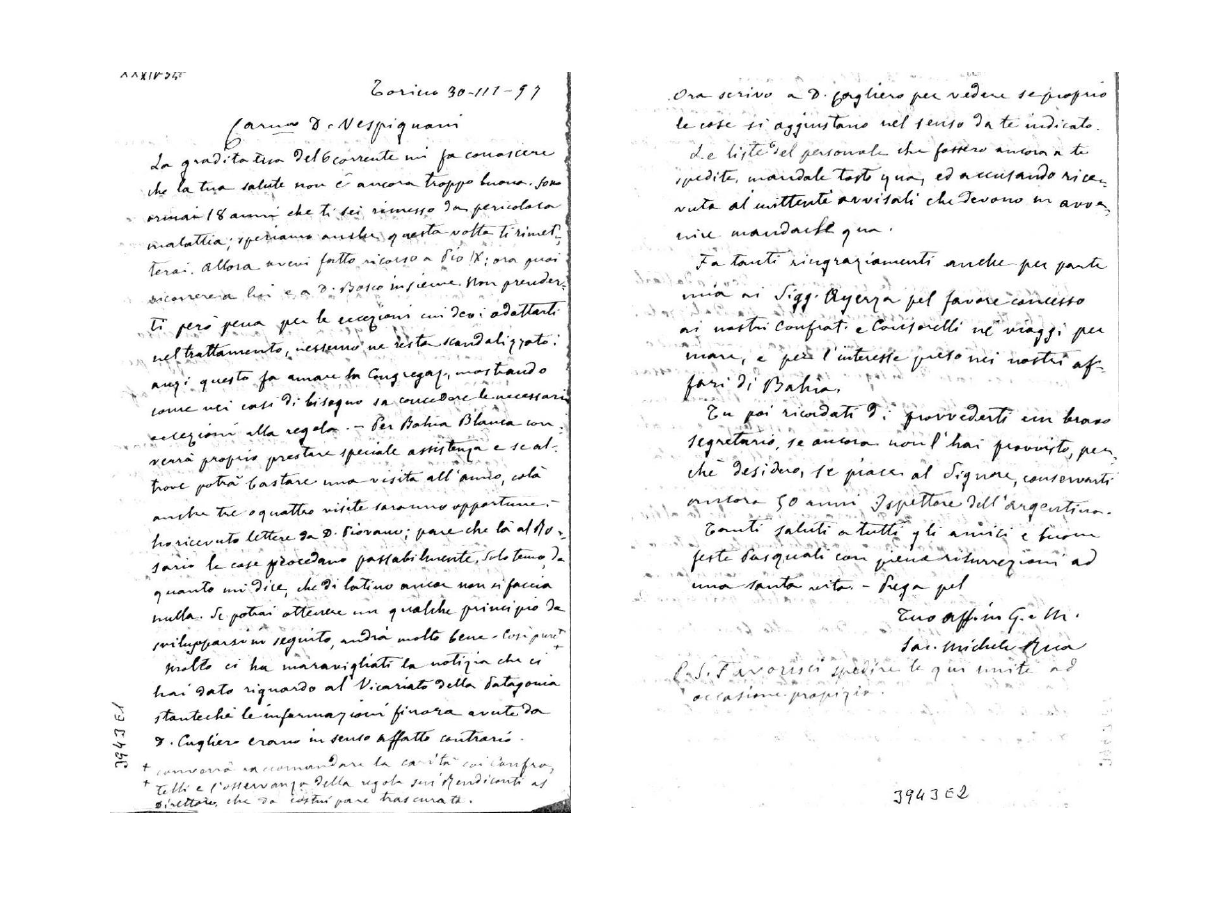 XXXIV 54
Torino 30-III-97
Carmo D. Vespignani
La gradita tua del 6 corrente mi fa conoscere
che la tua salute non è ancora troppo buona. Sono
ormai 18 anni che ti sei rimesso da pericolosa
malattia; speriamo anche questa volta ti rimet-
terai. Allora avevi fatto ricorso a Pio IX; ora puoi
ricorrere a lui e a D. Bosco insieme. Non prender-
ti però pena per le eccezioni cui devi adattarti
nel trattamento, nessuno ne resta scandalizzato:
anzi questo fa amare la Congregaz. mostrando
come nei casi di bisogno sa concedere le necessarie
eccezioni alla regola. - Per Bahia Blanca con-
verrà proprio prestare speciale assistenza e se al-
trove potrà bastare una visita all'anno, colà
anche tre o quattro visite saranno opportune.
ho ricevuto lettere da D. Giovano; pare che là al Ro-
sario le cose procedano passabilmente, solo temo, da
quanto mi dice, che di latino ancor non si faccia
nulla. Se potrai ottenere un qualche principio da
svilupparsi in seguito, andrà molto bene - Così pure +
Molto ci ha maravigliati la notizia che ci
hai dato riguardo al Vicariato della Patagonia
stanteché le informazioni finora avute da
D. Cagliero erano in senso affatto contrario.
+ converrà raccomandare la carità coi Confra-
+ telli e l'osservanza della regola sui Rendiconti al
Direttore, che da costui pare trascurata.
3943 E1
Ora scrivo a D. Cagliero per vedere se proprio
le cose si aggiustano nel senso da te indicato.
Le liste del personale che fossero ancora a te
spedite, mandale tosto qua, ed accusando rice-
vuta al mittente avvisali che devono in avve-
nire mandarle qua.
Fa tanti ringraziamenti anche per parte
mia ai Sigg. Ayerza pel favore concesso
ai nostri Confrat. e Consorelli ne' viaggi per
mare, e per l'interesse preso nei nostri af-
fari di Bahia.
Tu poi ricordati di provvederti un bravo
segretario, se ancora non l'hai provvisto, per-
chè desidero, se piace al Signore, conservarti
ancora 50 anni Ispettore dell'Argentina.
Tanti saluti a tutti gli amici e buone
feste Pasquali con piena risurrezioni ad
una santa vita. - Prega pel
Tuo affmo in G. e M.
Sac. Michele Rua
P.S. Favorisci spedire le qui unite ad
occasione propizia.
3943 E2